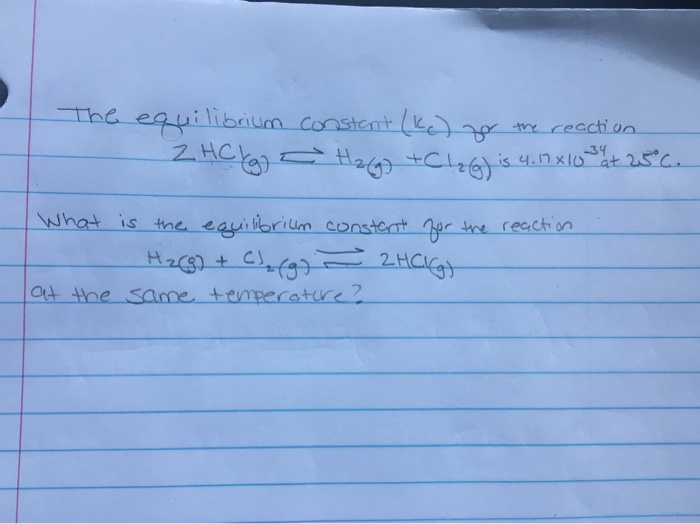 The equilibrium constant (Kc) for the reaction
2 HCl(g) ⇌ H₂(g) + Cl₂(g) is 4.17 x 10⁻³⁴ at 25°C.
What is the equilibrium constant for the reaction
H₂(g) + Cl₂(g) ⇌ 2HCl(g)
at the same temperature?